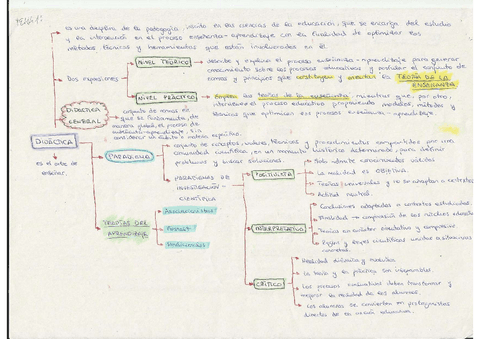 es una disciplina de la pedagogía, escrita en las ciencias de la educación, que se encarga del estudio
y la intervención en el proceso enseñanza-aprendizaje con la finalidad de optimizar los
métodos, técnicas y herramientas que están involucrados en él.
Dos expresiones
NIVEL TEÓRICO
describe y explica el proceso enseñanza-aprendizaje para generar
conocimiento sobre los procesos educativos y postular el conjunto de
normas y principios que constituyen y orientan la TEORÍA DE LA
ENSEÑANZA
NIVEL PRÁCTICO
la teoría de la enseñanza, mientras que, por otro,
interviene el proceso educativo proponiendo modelos, métodos y
técnicas que optimicen ese proceso enseñanza-aprendizaje
DIDÁCTICA
GENERAL
conjunto de normas en
que se fundamenta, de
manera global, el proceso de
enseñanza-aprendizaje, sin
considerar un ámbito o materia específica.
DIDÁCTICA
es el arte de
enseñar.
PARADIGMA
conjunto de conceptos, valores, técnicas y procedimientos compartidos por una
comunidad científica, en un momento histórico determinado, para definir
problemas y buscar soluciones.
PARADIGMAS DE
INVESTIGACIÓN
CIENTÍFICA
POSITIVISTA
Solo admite conocimientos válidos
La realidad es OBJETIVA.
Teorías universales y no se adaptan a contextos
Actitud neutral.
INTERPRETATIVO
Conclusiones adaptadas a contextos estudiados.
Finalidad → comprensión de los núcleos educativos
Teoría en carácter and comprensivo.
CRÍTICO
Realidad dinámica y evolutiva
La teoría y la práctica son inseparables.
Los procesos evaluativos deben transformar y
mejorar la realidad de los alumnos.
Los alumnos se convierten en protagonistas
directos de la acción educativa.
TEORÍAS DEL
APRENDIZAJE
Asociacionistas
Gestalt